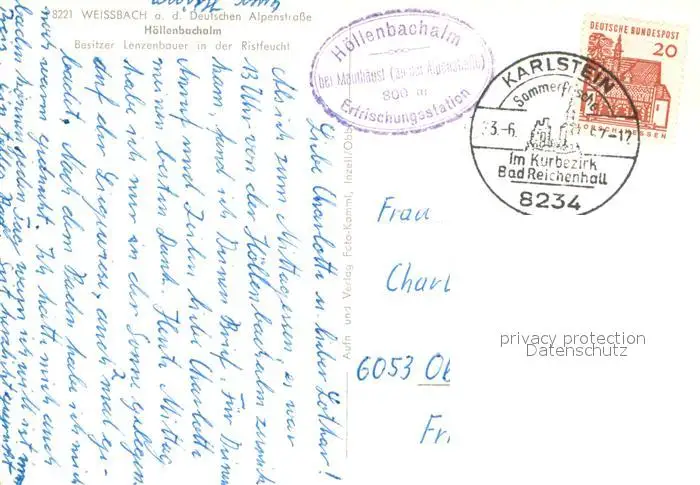 8221 WEISSBACH a. d. Deutschen Alpenstraße
Höllenbachalm
Besitzer Lenzenbauer in der Ristfeucht
Liebe Charlotte u. lieber Lothar!
Als ich zum Mittagessen, es war
13 Uhr von der Höllenbachalm zurück
kam, fand ich Deinen Brief. Für Deinen
Anruf und Zeilen liebe Charlotte
meinen besten Dank. Heute Mittag
habe ich nur in der Sonne gelegen
auf der Liegewiese, auch 2 mal ge-
badet. Nach dem Baden habe ich mich
noch warm geduscht. Ich hatte mich auch
Aufn und Verlag Foto-Kamml, Inzell/Obb
Höllenbachalm
bei Mauthäusl (an der Alpenstraße)
800 m
Erfrischungsstation
KARLSTEIN
Sommerfrische
im Kurbezirk
Bad Reichenhall
8234
DEUTSCHE BUNDESPOST
20
LORSCH HESSEN
Frau
Charl
6053 Ob
Fri
privacy protection
Datenschutz